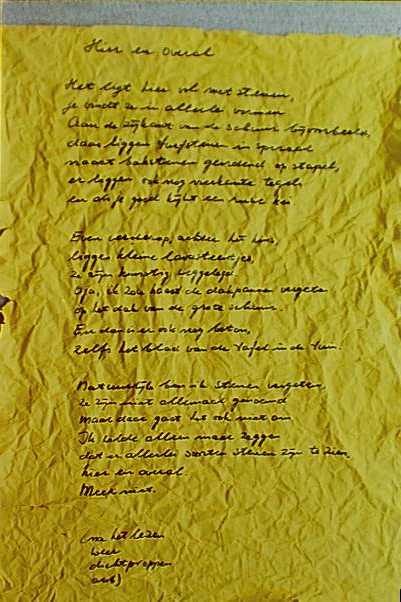 Hier en overal
Het ligt hier vol met stenen,
je vindt ze in allerlei vormen
Aan de zijkant van de schuur bijvoorbeeld,
daar liggen in
naast bakstenen geordend op stapel,
er liggen ook nog vierkante tegels
en als je goed kijkt een ruwe kei
Even verderop, achter het huis,
liggen kleine
ze zijn kunstig
Oja, ik zou haast de dakpannen vergeten
op het dak van de grote schuur.
En dan is er ook nog beton,
zelfs het blad van de tafel in de tuin.
Natuurlijk ben ik stenen vergeten,
ze zijn niet allemaal genoemd
maar daar gaat het ook niet om
Ik wilde alleen maar zeggen
dat er allerlei soorten stenen zijn te zien,
hier en overal.
Meer niet.
(na het lezen
weer
dichtproppen
aub)